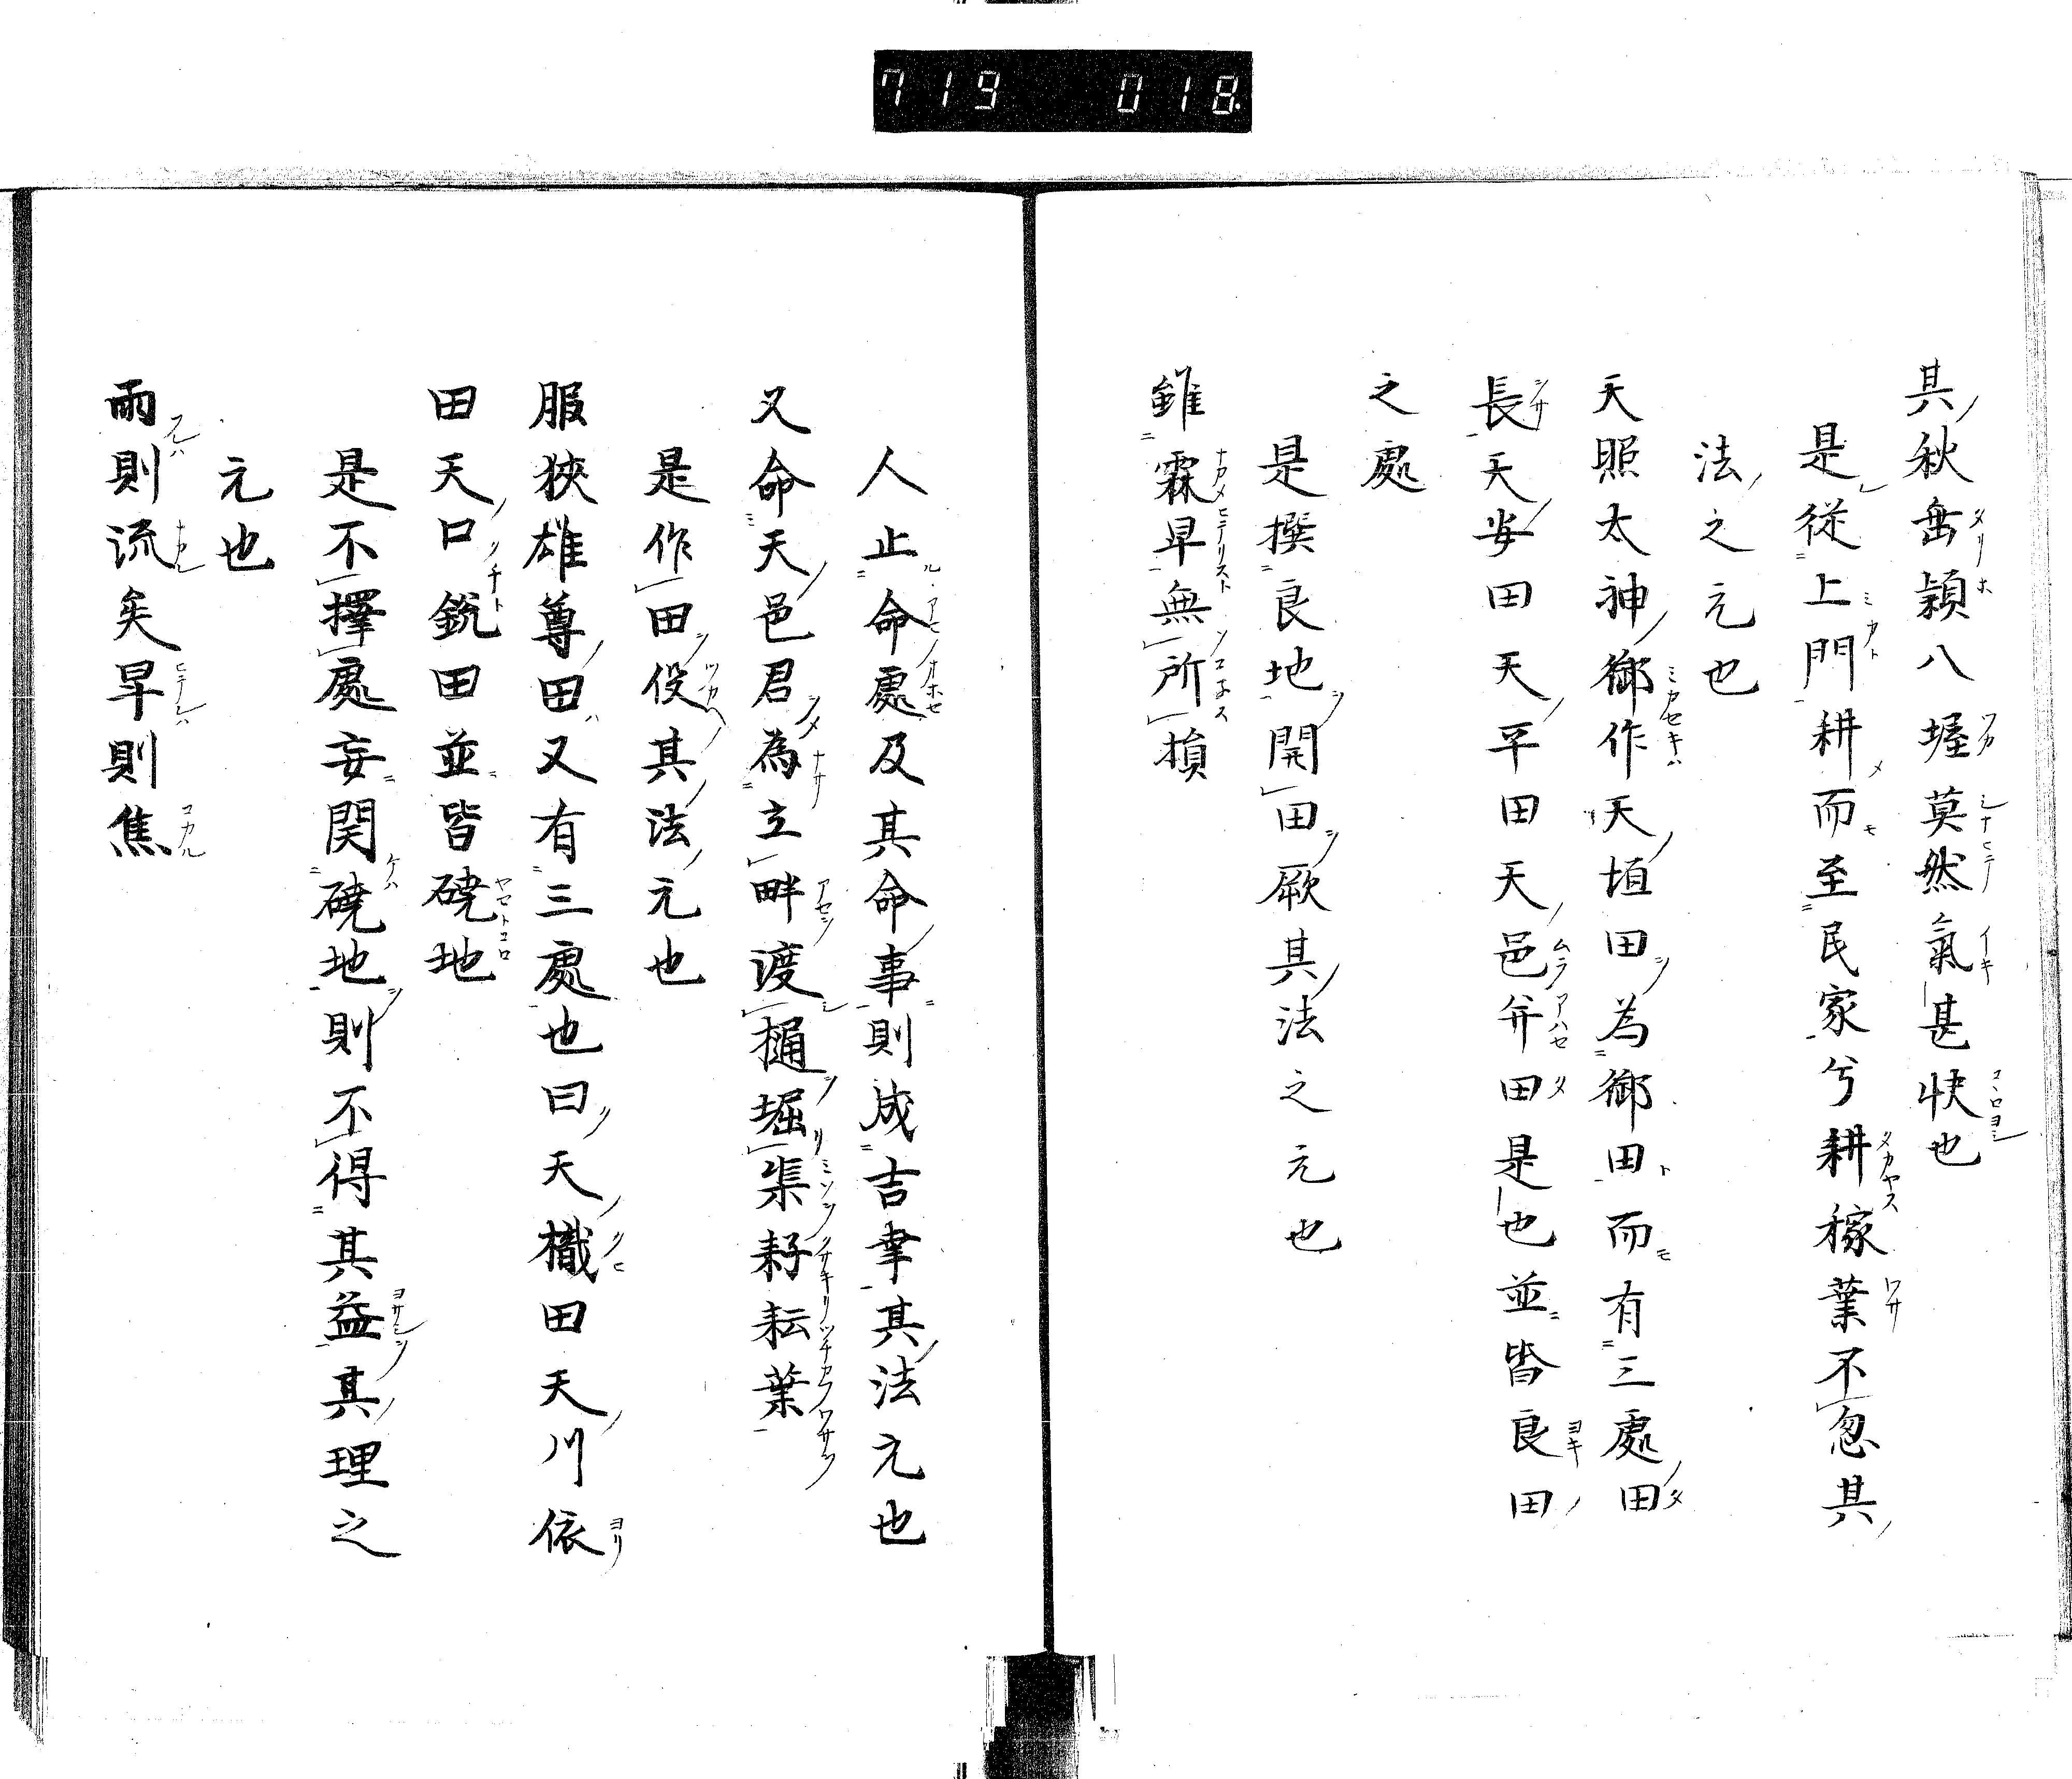 719 018
其秋垂穎八握莫然氣甚快也
是從上門耕而至民家兮耕稼業不忽其
法之元也
天照太神御作天垣田為御田而有三處田
長天安田天平田天邑并田是也並皆良田
之處
是撰良地開田厥其法之元也
雖霖旱無所損
人止命處及其命事則成吉幸其法元也
又命天邑君為立畔渡樋堀渠耔耘業
是作田役其法元也
服狹雄尊田又有三處也曰天樴田天川依
田天口銳田並皆磽地
是不擇處妄開磽地則不得其益其理之
元也
雨則流矣旱則焦